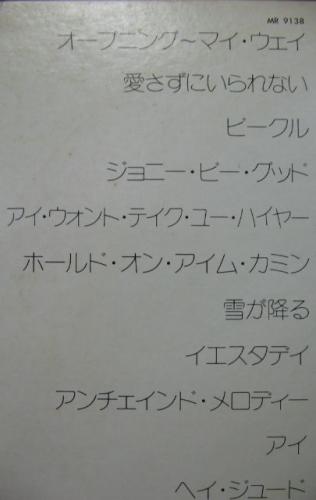 MR 9138
オープニング~マイ・ウェイ
愛さずにいられない
ビークル
ジョニー・ビー・グッド
アイ・ウォント・テイク・ユー・ハイヤー
ホールド・オン・アイム・カミン
雪が降る
イエスタデイ
アンチェインド・メロディー
アイ
ヘイ・ジュード